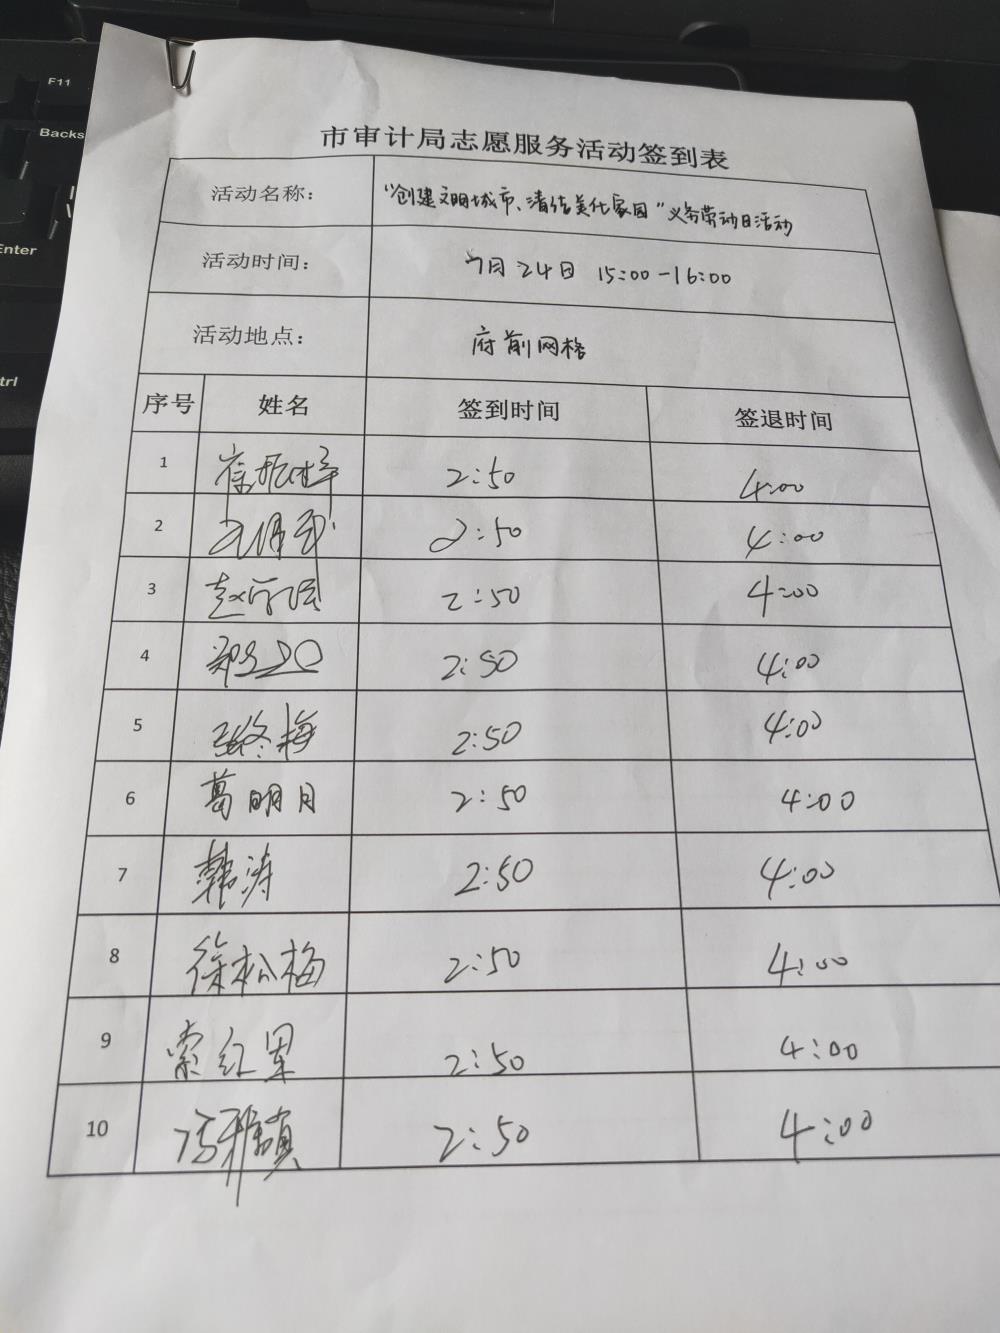 F11
Backs
Enter
trl
市审计局志愿服务活动签到表
活动名称: "创建文明城市、清洁美化家园"义务劳动日活动
活动时间: 7月24日 15:00-16:00
活动地点: 府前网格
序号 姓名 签到时间 签退时间
1 2:50 4:00
2 2:50 4:00
3 2:50 4:00
4 2:50 4:00
5 2:50 4:00
6 葛明月 2:50 4:00
7 韩涛 2:50 4:00
8 徐松梅 2:50 4:00
9 索红军 2:50 4:00
10 2:50 4:00